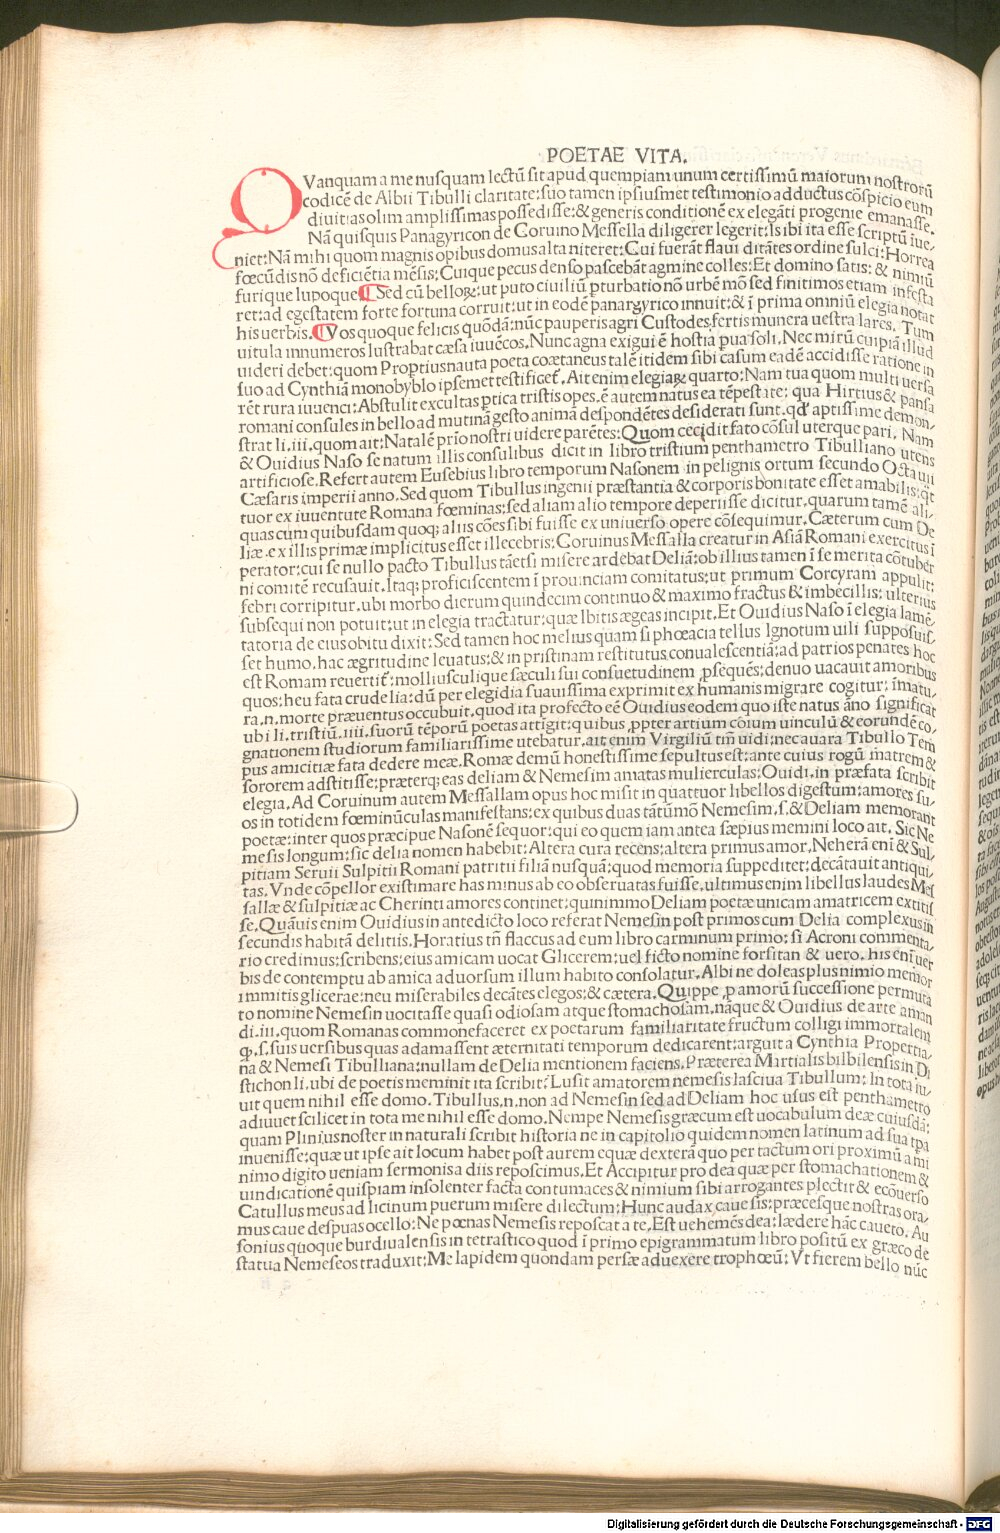 POETAE VITA.
QVanquam a me nusquam lectũ sit apud quempiam unum certissimũ maiorum nostrorũ
codicẽ de Albii Tibulli claritate: suo tamen ipsiusmet testimonio adductus cõspicio eum
diuitias olim amplissimas possedisse: & generis conditionẽ ex elegãti progenie emanasse.
Nã quisquis Panagyricon de Coruino Messella diligerer legerit: Is ibi ita esse scriptũ iue-
niet: Nã mihi quom magnis opibus domus alta niteret: Cui fuerãt flaui ditãtes ordine sulci: Horrea
fœcũdis nõ deficiẽtia mẽsis: Cuique pecus denso pascebãt agmine colles: Et domino satis: & nimiũ
furique lupoque ¶ Sed cũ belloꝝ: ut puto ciuiliũ pturbatio nõ urbẽ mõ sed finitimos etiam infesta
ret: ad egestatem forte fortuna corruit: ut in eodẽ panargyrico innuit: & ĩ prima omniũ elegia notat
his uerbis. ¶ Vos quoque felicis quõdã: nũc pauperis agri Custodes fertis munera uestra lares. Tum
uitula innumeros lustrabat cæsa iuuẽcos. Nunc agna exigui ẽ hostia pua soli. Nec mirũ cuipiã illud
uideri debet: quom Proptius nauta poeta coætaneus talẽ itidem sibi casum eadẽ accidisse ratione in
suo ad Cynthiã monobyblo ipsemet testificet̃. Ait enim elegiaꝝ quarto: Nam tua quom multi uersa
rẽt rura iuuenci: Abstulit excultas ptica tristis opes. ẽ autem natus ea tẽpestate: qua Hirtius & pansa
romani consules in bello ad mutinã gesto animã despondẽtes desiderati sunt. qđ aptissime demon-
strat li. iii. quom ait: Natalẽ prio nostri uidere parẽtes: Quom cecidit fato cõsul uterque pari. Nam
& Ouidius Naso se natum illis consulibus dicit in libro tristium penthametro Tibulliano utens
artificiose. Refert autem Eusebius libro temporum Nasonem in pelignis ortum secundo Octauii
Cæsaris imperii anno. Sed quom Tibullus ingenii præstantia & corporis bonitate esset amabilis: qt
tuor ex iuuentute Romana fœminas: sed aliam alio tempore deperiisse dicitur. quarum tamẽ ali-
quas cum quibusdam quoq; aliis cões sibi fuisse ex uniuerso opere cõsequimur. Cæterum cum De
liæ. ex illis primæ implicitus esset illecebris: Coruinus Messalla creatur in Asiã Romani exercitus ĩ
perator: cui se nullo pacto Tibullus tãetsi misere ardebat Deliã: ob illius tamen ĩ se merita cõtuber
ni comitẽ recusauit. Itaq; proficiscentem ĩ prouinciam comitatus: ut primum Corcyram appulit:
febri corripitur. ubi morbo dierum quindecim continuo & maximo fractus & imbecillis: ulterius
subsequi non potuit: ut in elegia tractatur: quæ Ibitis ægeas incipit. Et Ouidius Naso ĩ elegia lamẽ-
tatoria de eius obitu dixit: Sed tamen hoc melius quam si phœacia tellus Ignotum uili supposuis-
set humo. hac ægritudine leuatus: & in pristinam restitutus conualescentiã: ad patrios penates hoc
est Romam reuertit̃: molliusculique sæculi sui consuetudinem pseqũes: denuo uacauit amoribus
quos: heu fata crudelia: dũ per elegidia suauissima exprimit ex humanis migrare cogitur: ĩmatu-
ra. n. morte præuentus occubuit. quod ita profecto eẽ Ouidius eodem quo iste natus ãno significat
ubi li. tristiũ. iiii. suorũ tẽporũ poetas attigit: quibus ppter artium cõium uinculũ & eorundẽ co-
gnationem studiorum familiarissime utebatur. ait enim Virgiliũ tm̃ uidi: nec auara Tibullo Tem
pus amicitiæ fata dedere meæ. Romæ demũ honestissime sepultus est: ante cuius rogũ ĩmatrem &
sororem adstitisse: præterq; eas deliam & Nemesim amatas mulierculas: Ouidi. in præfata scribit
elegia. Ad Coruinum autem Messallam opus hoc misit in quattuor libellos digestum: amores su-
os in totidem fœminũculas manifestans: ex quibus duas tãtũmõ Nemesim. s. & Deliam memorant
poetæ: inter quos præcipue Nasonẽ sequor: qui eo quem iam antea sæpius memini loco ait. Sic Ne
mesis longum: sic delia nomen habebit: Altera cura recens: altera primus amor. Neherã eni & Sul-
pitiam Seruii Sulpitii Romani patritii filiã nusquã: quod memoria suppeditet: decãtauit antiqui-
tas. Vnde cõpellor existimare has minus ab eo obseruatas fuisse. ultimus enim libellus laudes Mes
sallæ & sulpitiæ ac Cherinti amores continet: quinimmo Deliam poetæ unicam amatricem extitis
se. Quãuis enim Ouidius in antedicto loco referat Nemesin post primos cum Delia complexus in
secundis habitã delitiis. Horatius tñ flaccus ad eum libro carminum primo: si Acroni commenta-
rio credimus: scribens: eius amicam uocat Glicerem: uel ficto nomine forsitan & uero. his enĩ uer
bis de contemptu ab amica aduorsum illum habito consolatur. Albi ne doleas plus nimio memor
immitis glicerae: neu miserabiles decãtes elegos: & cætera. Quippe p amorũ successione permuta
to nomine Nemesin uocitasse quasi odiosam atque stomachosam. nãque & Ouidius de arte aman
di. iii. quom Romanas commonefaceret ex poetarum familiaritate fructum colligi immortalem
ꝙ. s. suis uersibus quas adamassent æternitati temporum dedicarent: arguit a Cynthia Propertia-
ña & Nemesi Tibulliana: nullam de Delia mentionem faciens. Præterea Martialis bilbilensis in Di
stichon li. ubi de poetis meminit ita scribit: Lusit amatorem nemesis lasciua Tibullum: In tota iu-
uit quem nihil esse domo. Tibullus. n. non ad Nemesin sed ad Deliam hoc usus est penthametro
adiuuet scilicet in tota me nihil esse domo. Nempe Nemesis græcum est uocabulum deæ cuiusdã:
quam Plinius noster in naturali scribit historia ne in capitolio quidem nomen latinum ad sua tpa
inuenisse: quæ ut ipse ait locum habet post aurem equæ dexterã quo per tactum ori proximũ a mi
nimo digito ueniam sermonis a diis reposcimus. Et Accipitur pro dea quæ per stomachationem &
uindicationẽ quispiam insolenter facta contumaces & nimium sibi arrogantes plectit & ecõuerso
Catullus meus ad licinum puerum misere dilectum: Hunc audax caue sis: præcesque nostras ora-
mus caue despuas ocello: Ne pœnas Nemesis reposcat a te. Est uehemẽs dea: lædere hãc caueto. Au
sonius quoque burdiualensis in tetrastico quod ĩ primo epigrammatum libro positũ ex græco de
statua Nemeseos traduxit: Me lapidem quondam persæ aduexere trophœũ: Vt fierem bello nũc
Digitalisierung gefördert durch die Deutsche Forschungsgemeinschaft - DFG